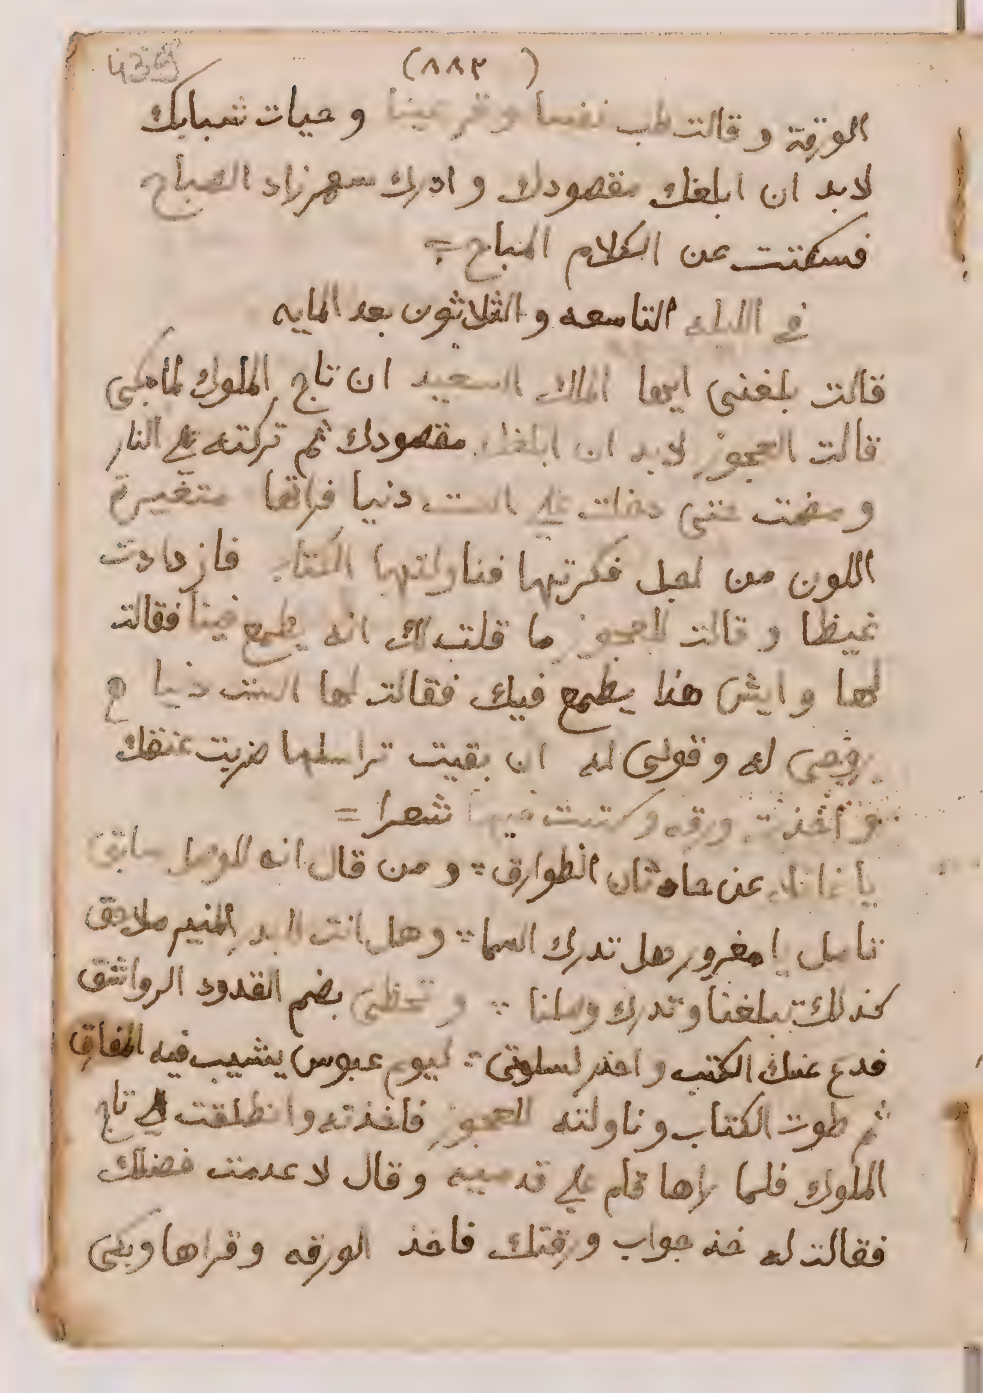 439
(٨٨٢)
الورقة و قالت طب نفسا و قر عينا و حيات شبابك
لا بد ان ابلغك مقصودك و ادرك سهرزاد الصباح
فسكتت عن الكلام المباح
في الليله التاسعه و الثلاثون بعد المايه
قالت بلغنى ايها الملك السعيد ان تاج الملوك لما بكى
قالت العجوز لا بد ان ابلغك مقصودك ثم تركته على النار
و مضت حتى دخلت على الست دنيا فراتها متغيرة
اللون من اجل فكرتها فناولتها الكتاب فازدادت
غيظا و قالت للعجوز ما قلت لك انه يطمع فينا فقالت
لها و ايش هذا يطمع فيك فقالت لها الست دنيا
روحى له و قولى له ان بقيت تراسلها ضربت عنقك
و اخذت ورقه و كتبت فيها شعرا =
يا غافلا عن حادثات الطوارق و من قال انه للوصل سابق
تامل يا مغرور هل تدرك السما و هل انت للبدر المنير ملاحق
كذلك تبلغنا و تدرك وصلنا و تحظى بضم القدود الرواشق
فدع عنك الكتب و احذر لسطوتى ليوم عبوس يشيب فيه المفارق
ثم طوت الكتاب و ناولته للعجوز فاخذته و انطلقت الى تاج
الملوك فلما راها قام على قدميه و قال لا عدمت فضلك
فقالت له خذ جواب ورقتك فاخذ الورقه و قراها و بكى